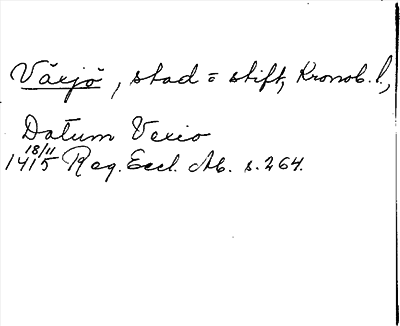 Växjö, stad = stift, Kronob. l.,
Datum Vexio
18/11
1415 Reg. Eccl. Ab. s. 264.